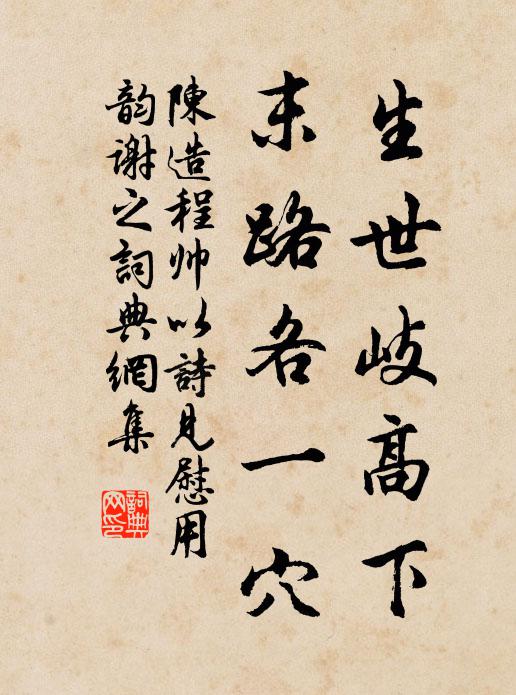 生世歧高下
末路各一穴
陳造程帅以詩見慰用
韵谢之詞典網集
詞典
网印